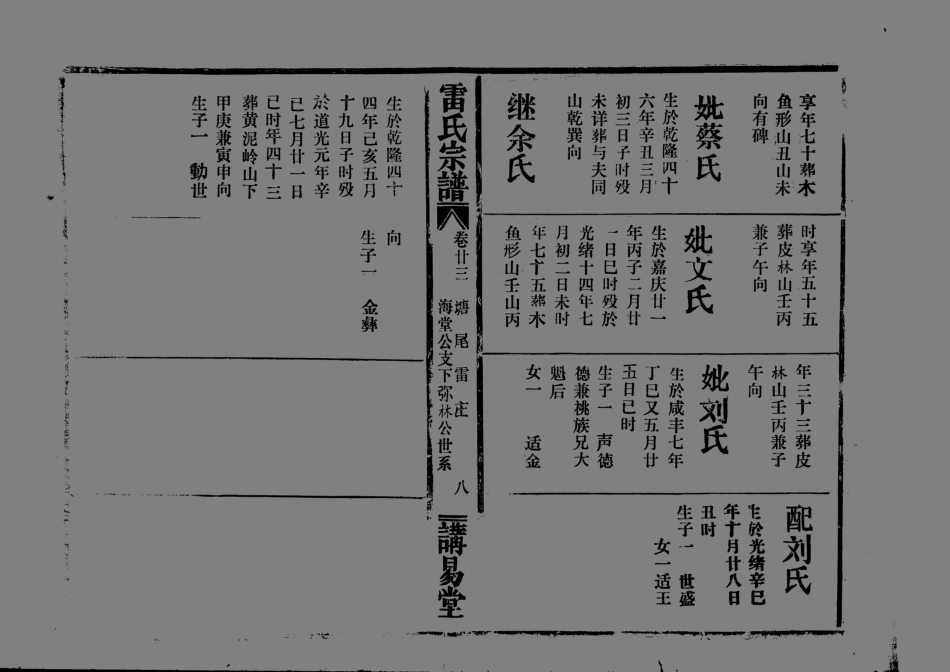 享年七十葬木
鱼形山丑山未
向有碑
妣蔡氏
生於乾隆四十
六年辛丑三月
初三日子时殁
未详葬与夫同
山乾巽向
继余氏
时享年五十五
葬皮林山壬丙
兼子午向
妣文氏
生於嘉庆廿一
年丙子二月廿
一日巳时殁於
光绪十四年七
月初二日未时
年七十五葬木
鱼形山壬山丙
年三十三葬皮
林山壬丙兼子
午向
妣刘氏
生於咸丰七年
丁巳又五月廿
五日已时
生子一 声德
德兼祧族兄大
魁后
女一 适金
配刘氏
生於光绪辛巳
年十月廿八日
丑时
生子一 世盛
女一适王
雷氏宗譜
卷廿三
塘尾雷庄
海堂公支下弥林公世系
八
講易堂
生於乾隆四十
四年己亥五月
十九日子时殁
於道光元年辛
已七月廿一日
已时年四十三
葬黄泥岭山下
甲庚兼寅申向
生子一 動世
向
生子一 金彝